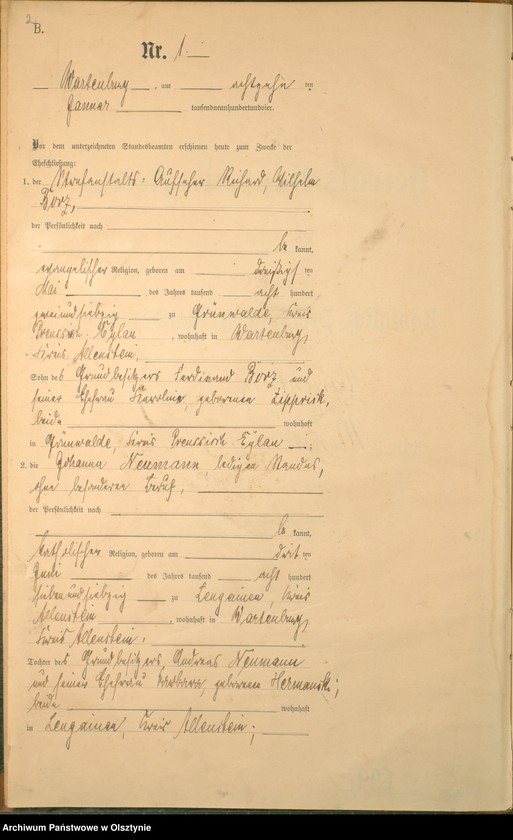 2
B.
Nr. 1.
Wartenburg, am achtzehn ten
Januar tausendneunhundertundvier.
Vor dem unterzeichneten Standesbeamten erschienen heute zum Zwecke der
Eheschließung:
1. der Strafanstalts-Aufseher Richard, Wilhelm
Borz,
der Persönlichkeit nach
be kannt,
evangelischer Religion, geboren am dreißigs ten
Mai des Jahres tausend acht hundert
zweiundsiebzig zu Grünwalde, Kreis
Preussisch Eylau, wohnhaft in Wartenburg,
Kreis Allenstein,
Sohn des Grundbesitzers Ferdinand Borz und
seiner Ehefrau Karoline, geborenen
beide wohnhaft
in Grünwalde, Kreis Preussisch-Eylau;
2. die Johanna Neumann, ledigen Standes,
ohne besonderen Beruf,
der Persönlichkeit nach
be kannt,
katholischer Religion, geboren am drit ten
Juni des Jahres tausend acht hundert
siebenundsiebzig zu Lengainen, Kreis
Allenstein, wohnhaft in Wartenburg,
Kreis Allenstein,
Tochter des Grundbesitzers, Andreas Neumann
und seiner Ehefrau Barbara, geborene Hermanski;
beide wohnhaft
in Lengainen, Kreis Allenstein;
Archiwum Państwowe w Olsztynie